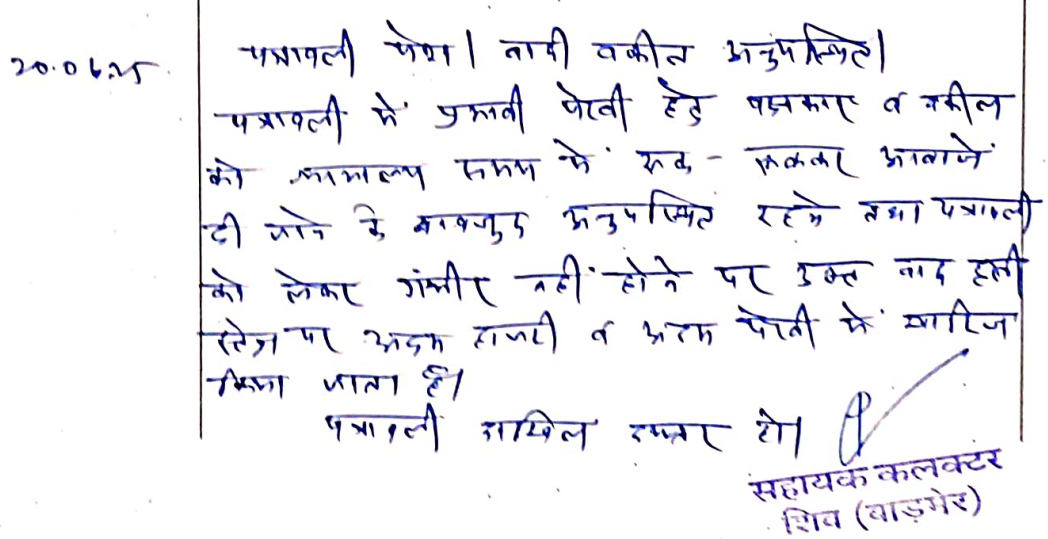 20.06.25
पत्रावली पेश। वादी वकील अनुपस्थित।
पत्रावली में प्रभावी पैरवी हेतु पक्षकार व वकील
को न्यायालय समय में रूक - रूककर आवाजें
दी जाने के बावजुद अनुपस्थित रहने तथा पत्रावली
को लेकर गंभीर नहीं होने पर उक्त वाद इसी
स्टेज पर अदम हाजरी व अदम पैरवी में खारिज
किया जाता है।
पत्रावली दाखिल दफ्तर हो।
सहायक कलक्टर
शिव (बाड़मेर)